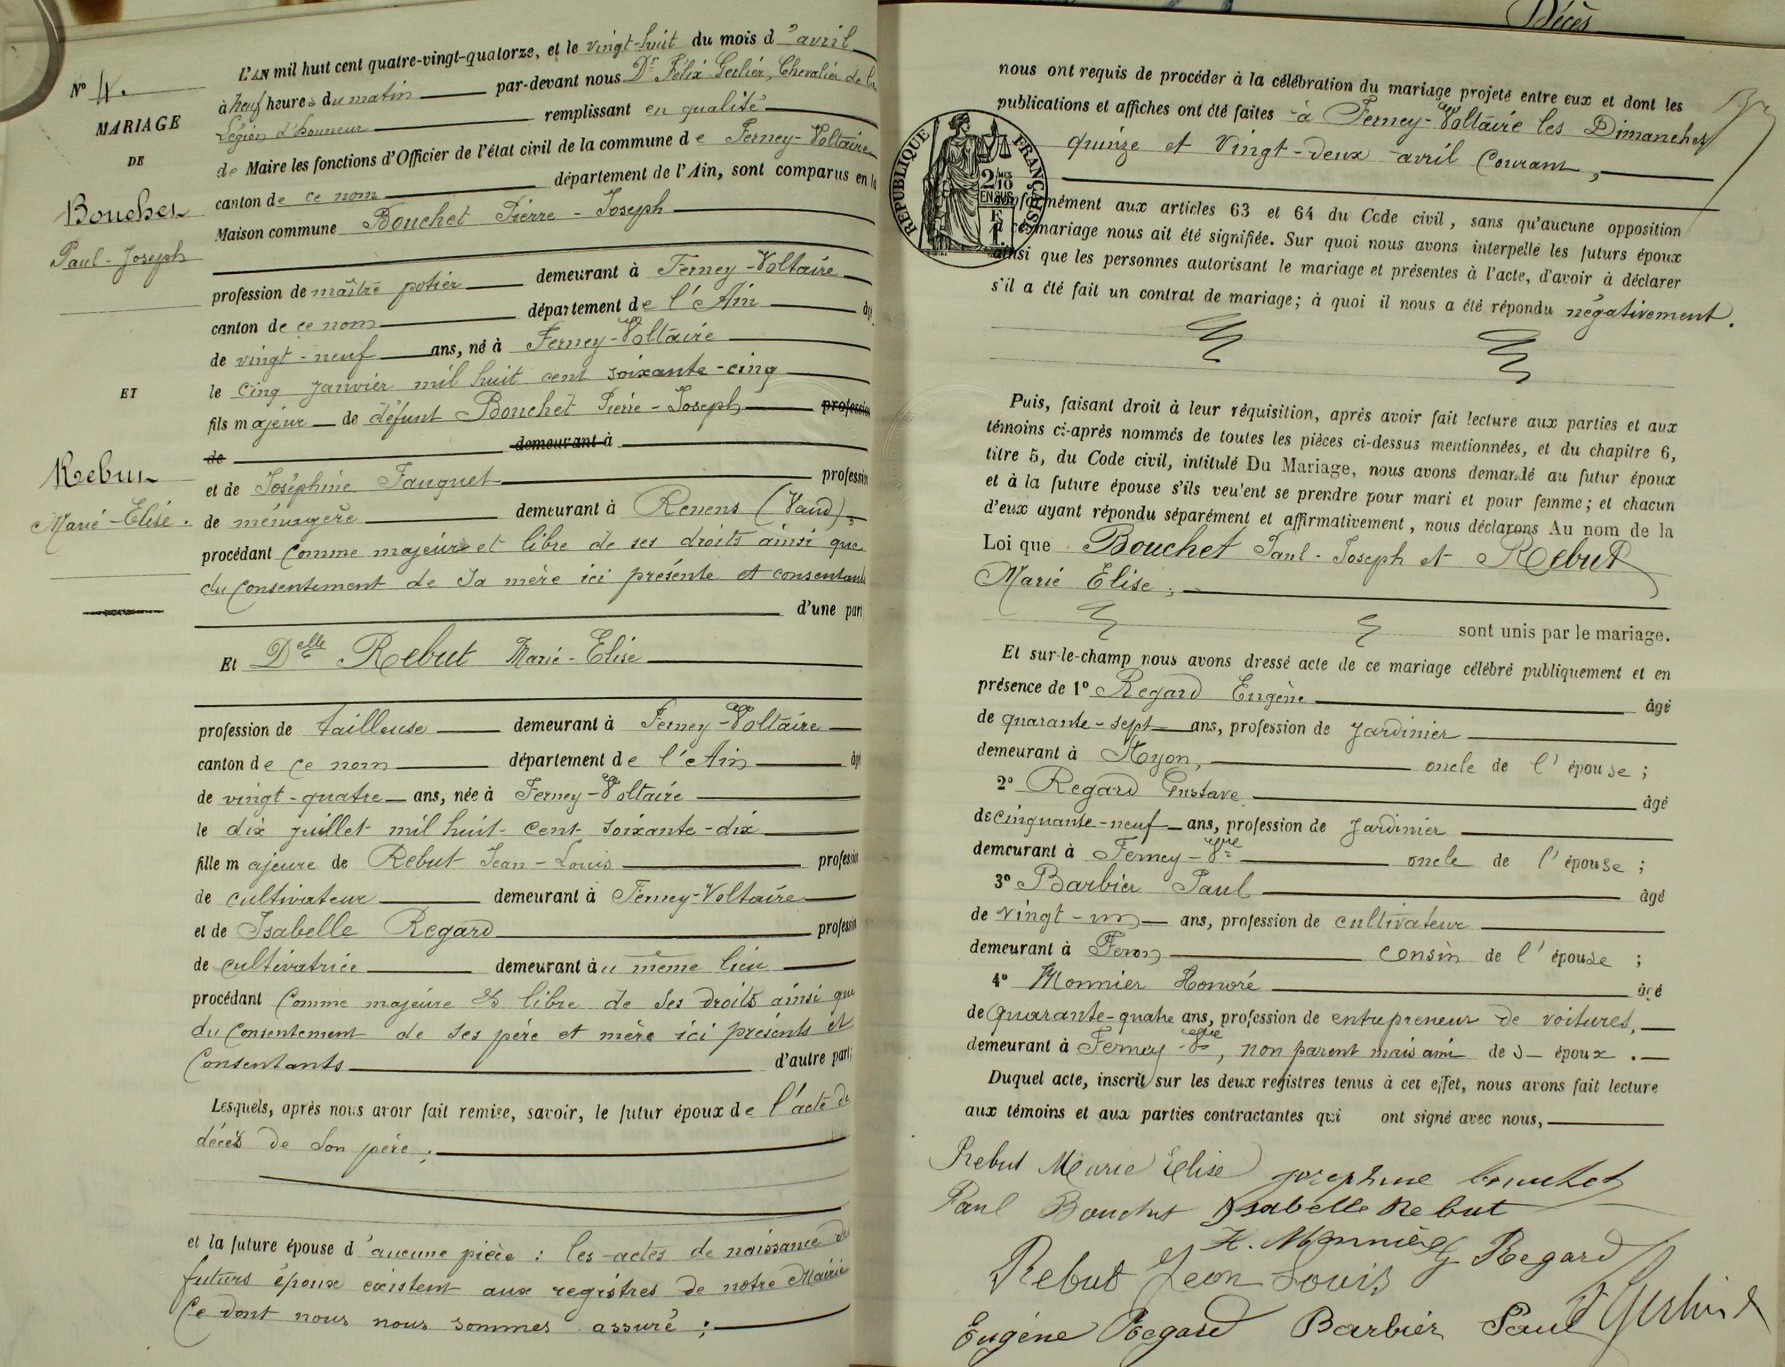 N° 4.
MARIAGE
DE
Bouchet
Paul-Joseph
ET
Rebut
Marie-Elise.
L'AN mil huit cent quatre-vingt-quatorze, et le vingt-huit du mois d'avril
à neuf heures du matin par-devant nous Dr Félix Gerlier, Chevalier de la
Légion d'honneur remplissant en qualité
de Maire les fonctions d'Officier de l'état civil de la commune de Ferney-Voltaire
canton de ce nom département de l'Ain, sont comparus en la
Maison commune Bouchet Pierre-Joseph
profession de maître potier demeurant à Ferney-Voltaire
canton de ce nom département de l'Ain âgé
de vingt-neuf ans, né à Ferney-Voltaire
le cinq janvier mil huit cent soixante-cinq
fils majeur de défunt Bouchet Pierre-Joseph profession
de demeurant à
et de Joséphine Fauquet profession
de ménagère demeurant à Renens (Vaud);
procédant comme majeur et libre de ses droits ainsi que
du consentement de sa mère ici présente et consentante
d'une part
Et Delle Rebut Marie-Elise
profession de tailleuse demeurant à Ferney-Voltaire
canton de ce nom département de l'Ain âgé
de vingt-quatre ans, née à Ferney-Voltaire
le dix juillet mil huit-cent-soixante-dix
fille majeure de Rebut Jean-Louis profession
de cultivateur demeurant à Ferney-Voltaire
et de Isabelle Regard profession
de cultivatrice demeurant au même lieu
procédant comme majeure & libre de ses droits ainsi que
du consentement de ses père et mère ici présents et
consentants d'autre part;
Lesquels, après nous avoir fait remise, savoir, le futur époux de l'acte de
décès de son père;
et la future épouse d'aucune pièce : les actes de naissance de
futurs époux existent aux registres de notre Mairie
Ce dont nous nous sommes assuré ;
Décès
nous ont requis de procéder à la célébration du mariage projeté entre eux et dont les
publications et affiches ont été faites à Ferney-Voltaire les Dimanches
quinze et vingt-deux avril courant,
RÉPUBLIQUE FRANÇAISE
2/10
EN SUS
conformément aux articles 63 et 64 du Code civil, sans qu'aucune opposition
à ce mariage nous ait été signifiée. Sur quoi nous avons interpellé les futurs époux
ainsi que les personnes autorisant le mariage et présentes à l'acte, d'avoir à déclarer
s'il a été fait un contrat de mariage; à quoi il nous a été répondu négativement.
Puis, faisant droit à leur réquisition, après avoir fait lecture aux parties et aux
témoins ci-après nommés de toutes les pièces ci-dessus mentionnées, et du chapitre 6,
titre 5, du Code civil, intitulé Du Mariage, nous avons demandé au futur époux
et à la future épouse s'ils veu'ent se prendre pour mari et pour femme; et chacun
d'eux ayant répondu séparément et affirmativement, nous déclarons Au nom de la
Loi que Bouchet Paul-Joseph et Rebut
Marie Elise;
sont unis par le mariage.
Et sur-le-champ nous avons dressé acte de ce mariage célébré publiquement et en
présence de 1° Regard Eugène âgé
de quarante-sept ans, profession de jardinier
demeurant à Nyon, oncle de l'épouse;
2° Regard Gustave âgé
de cinquante-neuf ans, profession de jardinier
demeurant à Ferney-Vre oncle de l'épouse;
3° Barbier Paul âgé
de vingt-un ans, profession de cultivateur
demeurant à cousin de l'épouse;
4° Monnier Honoré âgé
de quarante-quatre ans, profession de entrepreneur de voitures,
demeurant à Ferney-Vre, non parent mais ami des époux.
Duquel acte, inscrit sur les deux registres tenus à cet effet, nous avons fait lecture
aux témoins et aux parties contractantes qui ont signé avec nous,
Rebut Marie Elise Josephine Bouchet
Paul Bouchet Isabelle Rebut
H. Monnier G Regard
Rebut Jean Louis
Eugène Regard Barbier Paul F Gerlier